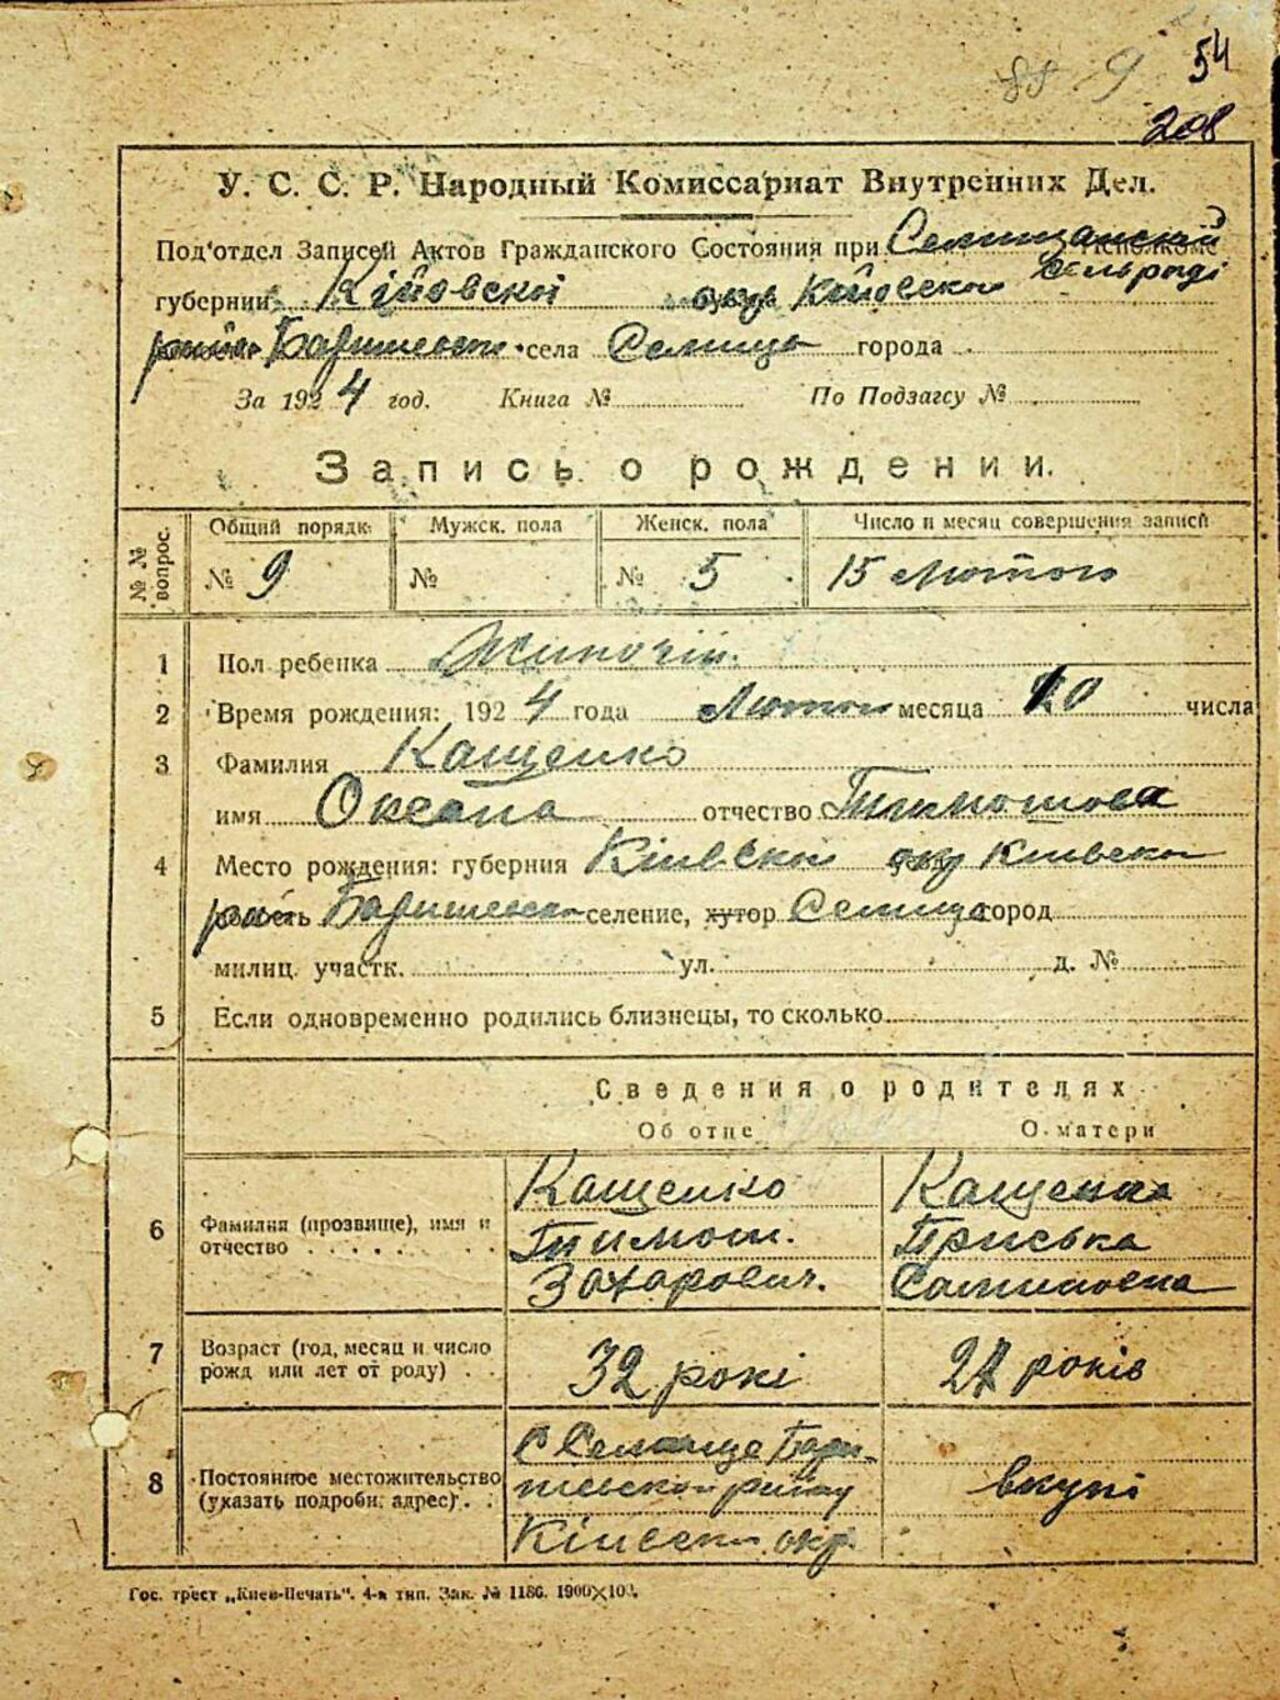 88 9 54
208
У. С. С. Р. Народный Комиссариат Внутренних Дел.
Под'отдел Записей Актов Гражданского Состояния при Селищанскій Исполкоме
губернии Кіївскої окр Київсько сельраді
район Баришевськ села Селища города
За 1924 год. Книга № По Подзагсу №
Запись о рождении.
№ № вопрос. Общий порядк. Мужск. пола Женск. пола Число и месяц совершения записи
№ 9 № № 5 15 лютого
1 Пол ребенка Жиночій.
2 Время рождения: 1924 года Лютого месяца 10 числа
3 Фамилия Кащенко
имя Оксана отчество Тимошова
4 Место рождения: губерния Київскої окр Київсько
район Баришевсько селение, хутор Селище город
милиц. участк. ул. д. №
5 Если одновременно родились близнецы, то сколько
Сведения о родителях
Об отце О матери
6 Фамилия (прозвище), имя и отчество Кащенко Кащенко
Тимош. Приська
Захарович.
7 Возраст (год, месяц и число рожд или лет от роду) 32 рокі 27 років
8 Постоянное местожительство (указать подробн. адрес) С Селище Бари-
шевского району вкупі
Київськ окр.
Гос. трест „Киев-Печать". 4-я тип. Зак. № 1186. 1900×100.